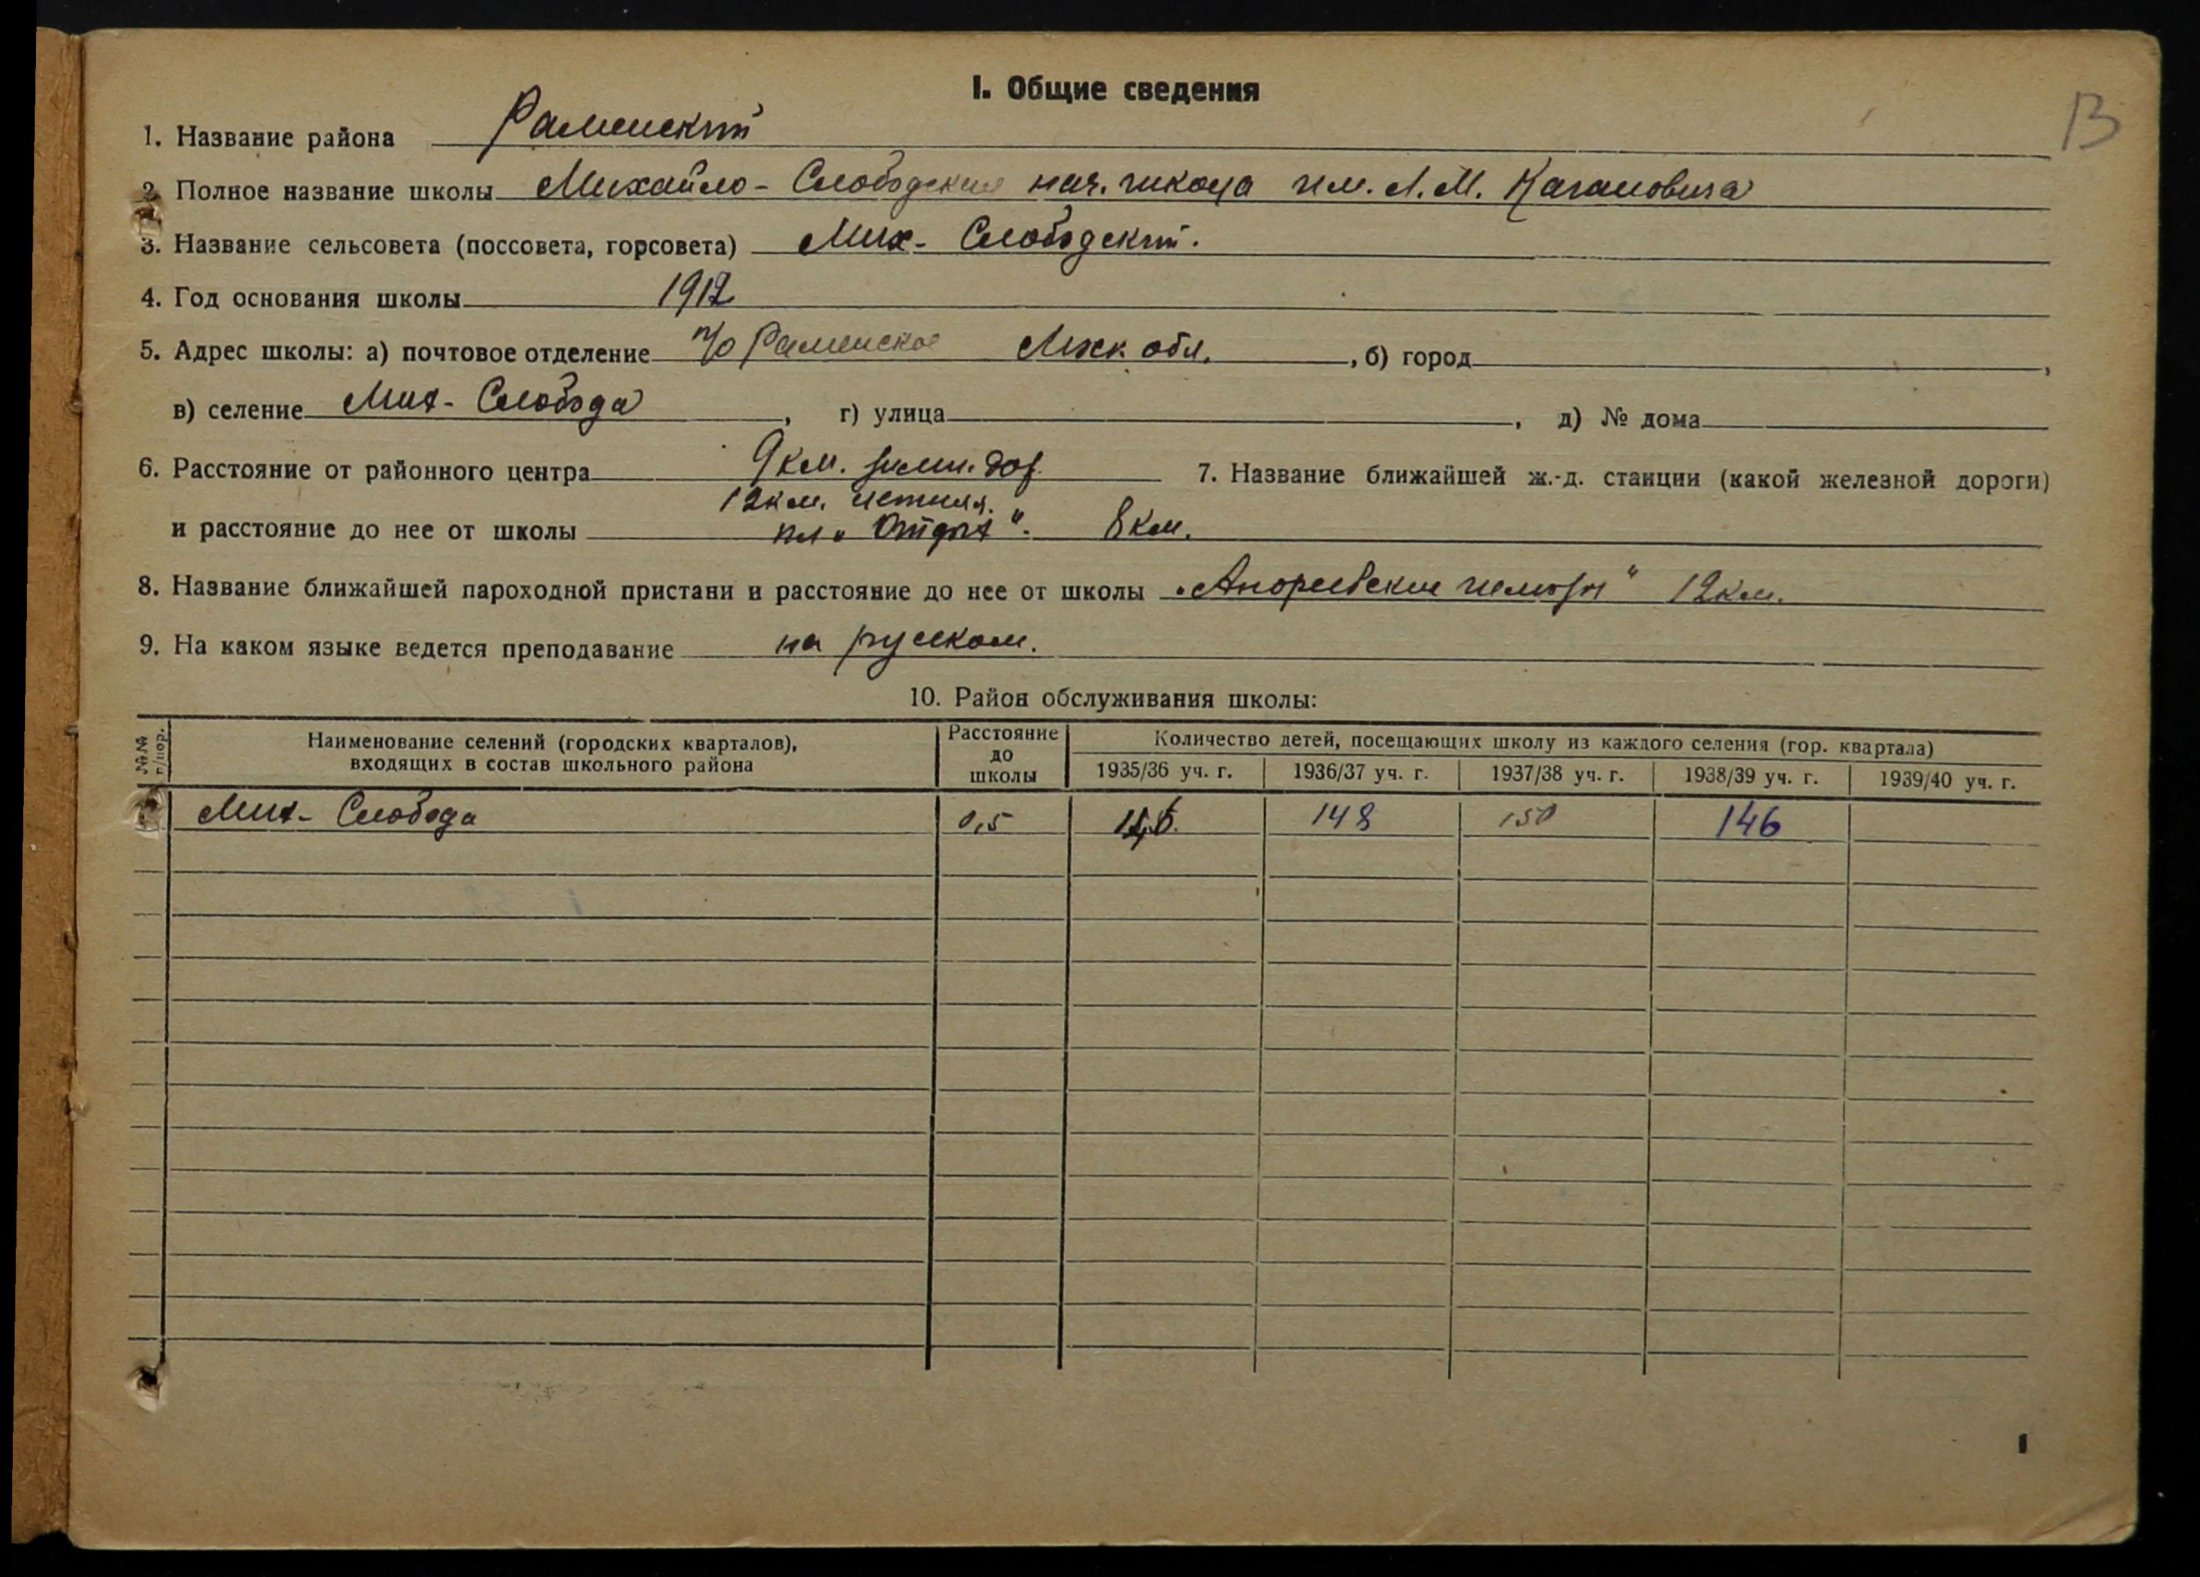 I. Общие сведения
13
1. Название района Раменский
2. Полное название школы Михайло- Слободская нач. школа им. Л. М. Кагановича
3. Название сельсовета (поссовета, горсовета) Мих- Слободский.
4. Год основания школы 1912
5. Адрес школы: а) почтовое отделение п/о Раменское Моск обл. , б) город ,
в) селение Мих- Слобода , г) улица , д) № дома
6. Расстояние от районного центра 9 км. зимн. дор. 7. Название ближайшей ж.-д. станции (какой железной дороги)
12 км. летняя.
и расстояние до нее от школы пл „Отдых“. 8 км.
8. Название ближайшей пароходной пристани и расстояние до нее от школы 12 км.
9. На каком языке ведется преподавание на русском.
10. Район обслуживания школы:
№№ п/пор. Наименование селений (городских кварталов), входящих в состав школьного района Расстояние до школы Количество детей, посещающих школу из каждого селения (гор. квартала)
1935/36 уч. г. 1936/37 уч. г. 1937/38 уч. г. 1938/39 уч. г. 1939/40 уч. г.
Мих- Слобода 0,5 148 150 146
1